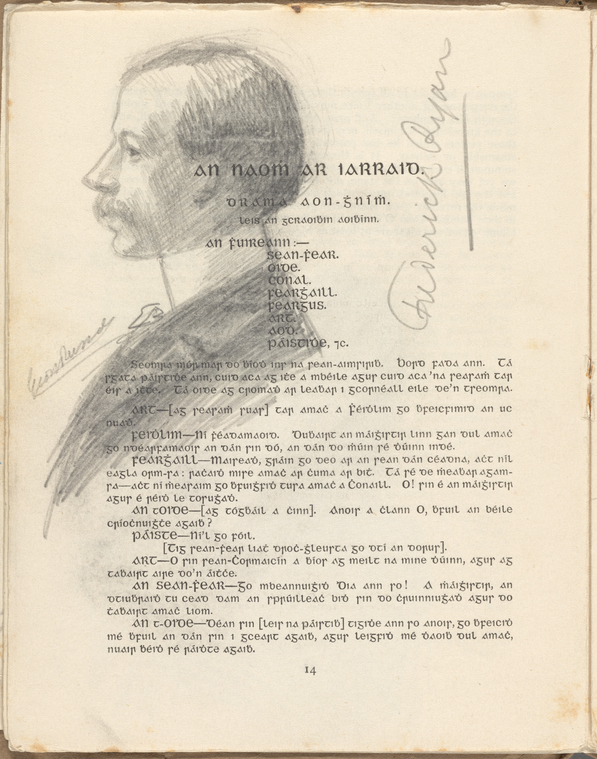 Frederick Ryan
AN NAOṀ AR IARRAIḊ.
DRÁMA AON-ĠNÍṀ.
Leis an gCraoiḃín Aoiḃinn.
An Ḟuireann:—
Sean-Ḟear.
Oide.
Conal.
Fearġaill.
Feargus.
Art.
Aoḋ.
Páistiḋe, ⁊c.
Seomra mór mar do ḃíoḋ ins na sean-aimsiriḃ. Bord fada ann. Tá
sgata páistiḋe ann, cuid aca ag iṫe a mbéile agus cuid aca 'na seasaṁ tar
éis a iṫte. Tá oide ag cromaḋ ar leaḃar i gcornéall eile de'n tseomra.
Art—[ag seasaṁ suas] tar amaċ a Ḟéiḋlim go ḃfeicfimíd an uc
nuaḋ.
Feiḋlim—Ní ḟéadamaoid. Duḃairt an máiġistir linn gan dul amaċ
go ndéarfamaois an dán sin dó, an dán do ṁúin sé ḋúinn indé.
Fearġaill—Maireaḋ, gráin go deo ar an sean dán céadna, aċt níl
eagla orm-sa; raċaiḋ mise amaċ ar ċuma ar biṫ. Tá sé de ṁeaḃair agam-
sa—aċt ní ṁeasaim go ḃfuiġfiḋ tusa amaċ a Ċonaill. O! sin é an máiġistir
agus é réiḋ le tosuġaḋ.
An t-Oide—[ag tógḃáil a ċinn]. Anois a ċlann O, ḃfuil an béile
críoċnuiġṫe agaiḃ?
Páiste—Ní'l go fóil.
[Tig sean-ḟear liaṫ droċ-ġléusta go dtí an dorus].
Art—O sin sean-Ċormaicín a ḃíos ag meilt na mine ḋúinn, agus ag
taḃairt aire do'n áiṫċe.
An Sean-Ḟear—Go mbeannuiġiḋ Dia ann so! A ṁáiġistir, an
dtiuḃraiḋ tu cead dam an sprúilleaċ bíḋ sin do ċruinniuġaḋ agus do
ṫaḃairt amaċ liom.
An t-Oide—Déan sin [leis na páistiḃ] tigiḋe ann so anois, go ḃfeiciḋ
mé ḃfuil an dán sin i gceart agaiḃ, agus leigfiḋ mé ḋaoiḃ dul amaċ,
nuair ḃéiḋ sé ráiḋte agaiḃ.
14